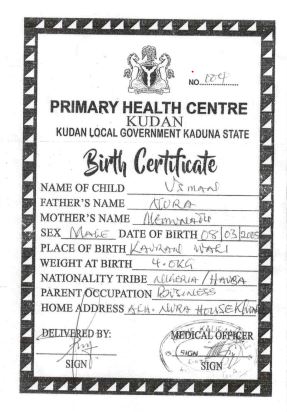 NO. 104
PRIMARY HEALTH CENTRE
KUDAN
KUDAN LOCAL GOVERNMENT KADUNA STATE
Birth Certificate
NAME OF CHILD USMAN
FATHER'S NAME NURA
MOTHER'S NAME
SEX MALE DATE OF BIRTH 08/03/2005
PLACE OF BIRTH KAURAN WALI
WEIGHT AT BIRTH 4.0KG
NATIONALITY TRIBE NIGERIA/HAUSA
PARENT OCCUPATION BUSINESS
HOME ADDRESS ALH. NURA HOUSE
DELIVERED BY: MEDICAL OFFICER
SIGN
SIGN SIGN